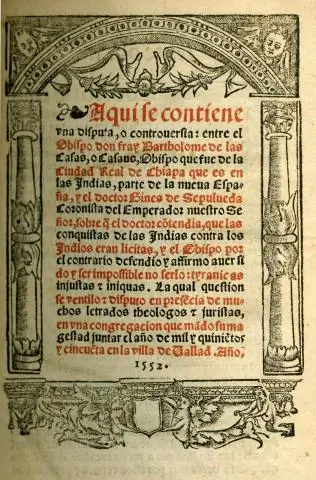 Aqui se contiene
vna disputa, o controuersia: entre el
Obispo don fray Bartholome de las
Casas, o Casaus, Obispo que fue de la
Ciudad Real de Chiapa que es en
las Indias, parte de la nueua Espa-
ña, y el doctor Gines de Sepulueda
Coronista del Emperador nuestro Se-
ñor, sobre q̃ el doctor cõtendia, que las
conquistas de las Indias contra los
Indios eran licitas, y el Obispo por
el contrario defendio y affirmo auer si
do y ser impossible no serlo: tyranicas
injustas ⁊ iniquas. La qual question
se ventilo ⁊ disputo en presẽcia de mu-
chos letrados theologos ⁊ juristas,
en vna congregacion que mãdo su ma
gestad juntar el año de mil y quiniẽtos
y cincuẽta en la villa de Vallad. Año.
1552.